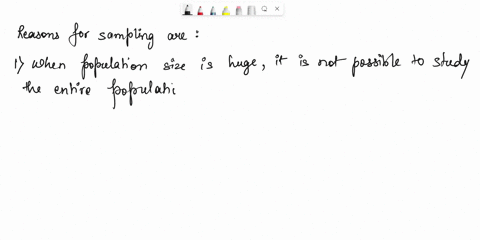 Reasons for sampling are :
1) when population size is huge, it is not possible to study
the entire populati